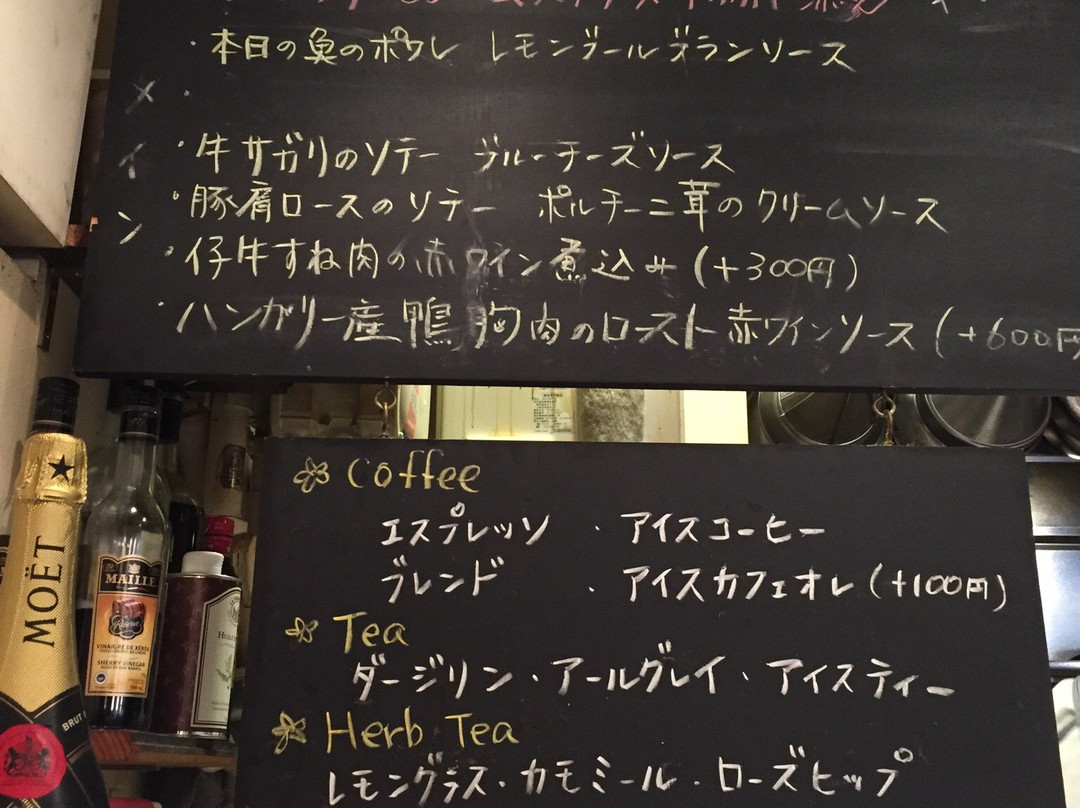 ・本日の魚のポワレ レモンブールブランソース
メイン
・牛サガリのソテー ブルーチーズソース
・豚肩ロースのソテー ポルチーニ茸のクリームソース
・仔牛すね肉の赤ワイン煮込み(+300円)
・ハンガリー産鴨胸肉のロースト赤ワインソース(+600円
Coffee
エスプレッソ ・アイスコーヒー
ブレンド ・アイスカフェオレ(+100円)
Tea
ダージリン・アールグレイ・アイスティー
Herb Tea
レモングラス・カモミール・ローズヒップ
MOËT
BRUT
MAILLE
Réserve
VINAIGRE DE XÉRÈS
SHERRY VINEGAR